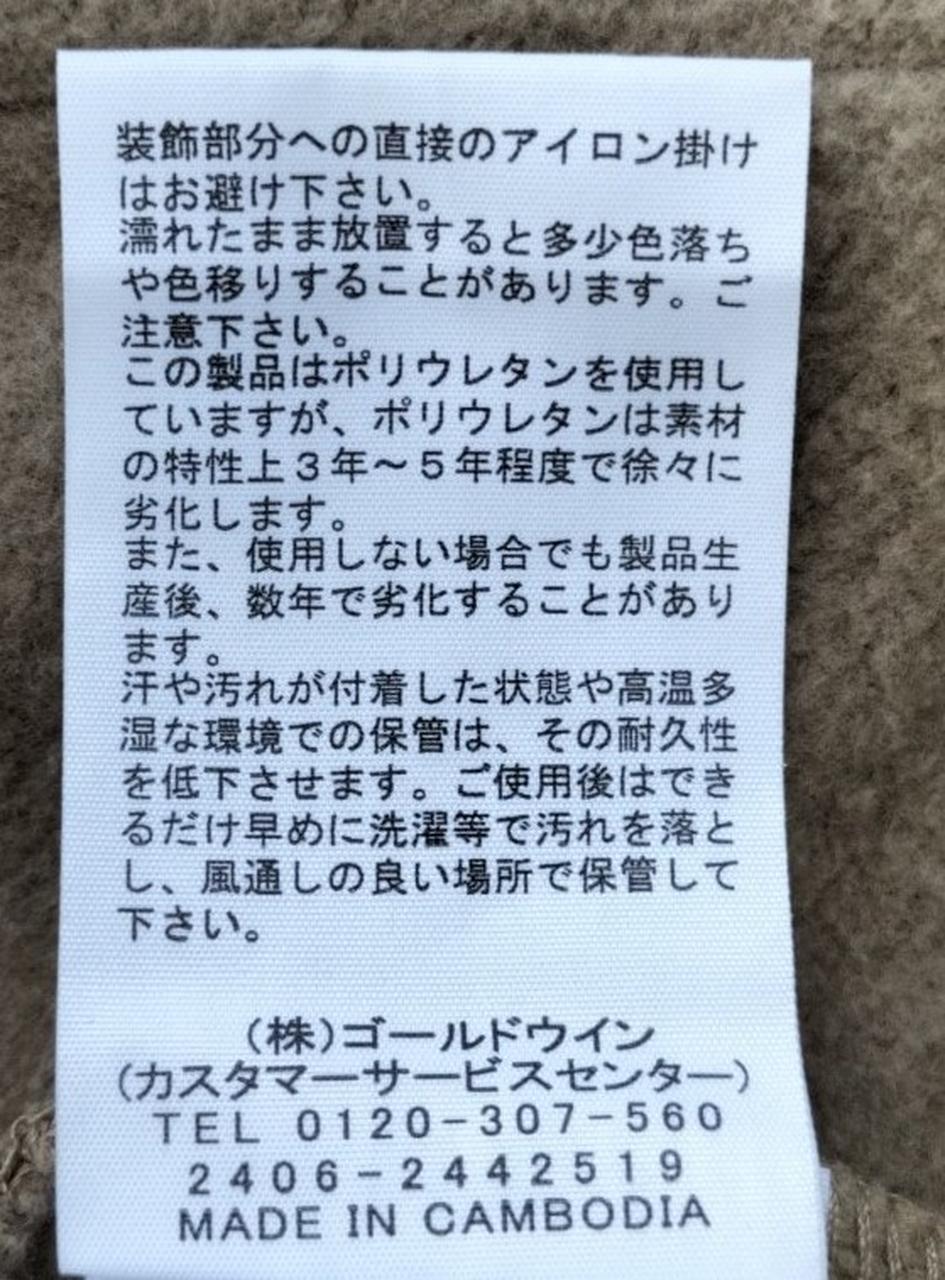 装飾部分への直接のアイロン掛け
はお避け下さい。
濡れたまま放置すると多少色落ち
や色移りすることがあります。ご
注意下さい。
この製品はポリウレタンを使用し
ていますが、ポリウレタンは素材
の特性上３年～５年程度で徐々に
劣化します。
また、使用しない場合でも製品生
産後、数年で劣化することがあり
ます。
汗や汚れが付着した状態や高温多
湿な環境での保管は、その耐久性
を低下させます。ご使用後はでき
るだけ早めに洗濯等で汚れを落と
し、風通しの良い場所で保管して
下さい。
(株)ゴールドウイン
(カスタマーサービスセンター)
TEL 0120-307-560
2406-2442519
MADE IN CAMBODIA